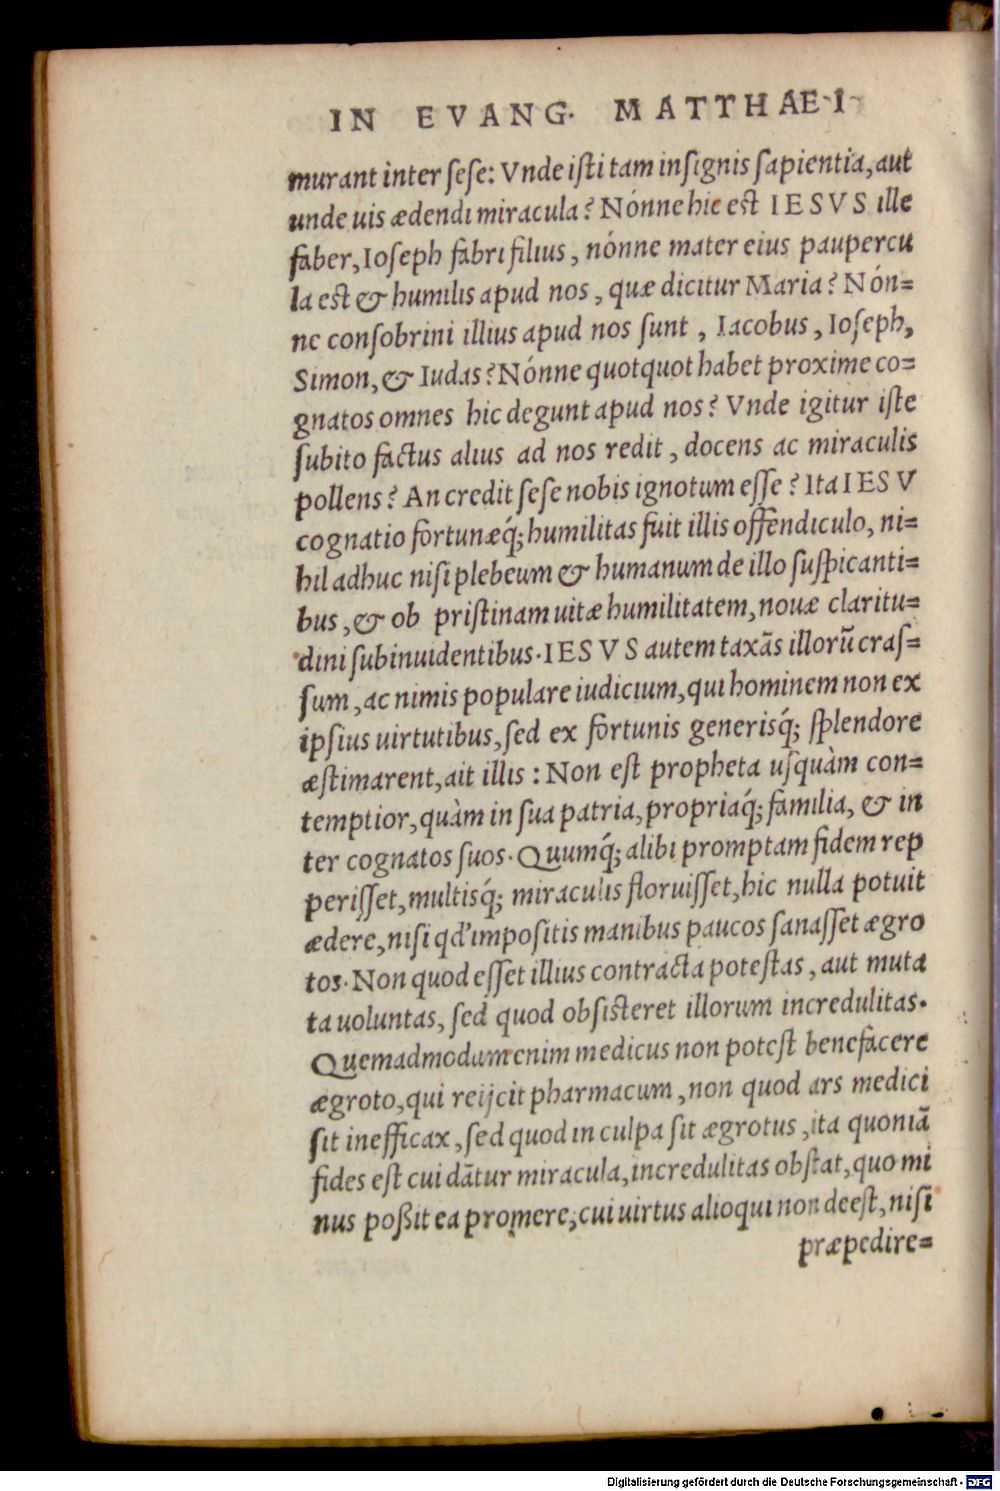 IN EVANG. MATTHAEI
murant inter sese: Vnde isti tam insignis sapientia, aut
unde uis ædendi miracula? Nónne hic est IESVS ille
faber, Ioseph fabri filius, nónne mater eius paupercu
la est & humilis apud nos, quæ dicitur Maria? Nón=
ne consobrini illius apud nos sunt, Iacobus, Ioseph,
Simon, & Iudas? Nónne quotquot habet proxime co=
gnatos omnes hic degunt apud nos? Vnde igitur iste
subito factus alius ad nos redit, docens ac miraculis
pollens? An credit sese nobis ignotum esse? Ita IESV
cognatio fortunæq́; humilitas fuit illis offendiculo, ni=
hil adhuc nisi plebeum & humanum de illo suspicanti=
bus, & ob pristinam uitæ humilitatem, nouæ claritu=
dini subinuidentibus. IESVS autem taxãs illorũ cras=
sum, ac nimis populare iudicium, qui hominem non ex
ipsius uirtutibus, sed ex fortunis generisq́; splendore
æstimarent, ait illis: Non est propheta usquàm con=
temptior, quàm in sua patria, propriaq́; familia, & in
ter cognatos suos. Quumq́; alibi promptam fidem rep
perisset, multisq́; miraculis floruisset, hic nulla potuit
ædere, nisi qd' impositis manibus paucos sanasset ægro
tos. Non quod esset illius contracta potestas, aut muta
ta uoluntas, sed quod obsisteret illorum incredulitas.
Quemadmodum enim medicus non potest benefacere
ægroto, qui reijcit pharmacum, non quod ars medici
sit inefficax, sed quod in culpa sit ægrotus, ita quoniã
fides est cui dãtur miracula, incredulitas obstat, quo mi
nus poßit ea promere, cui uirtus alioqui non deest, nisi
præpedire=
Digitalisierung gefördert durch die Deutsche Forschungsgemeinschaft - DFG